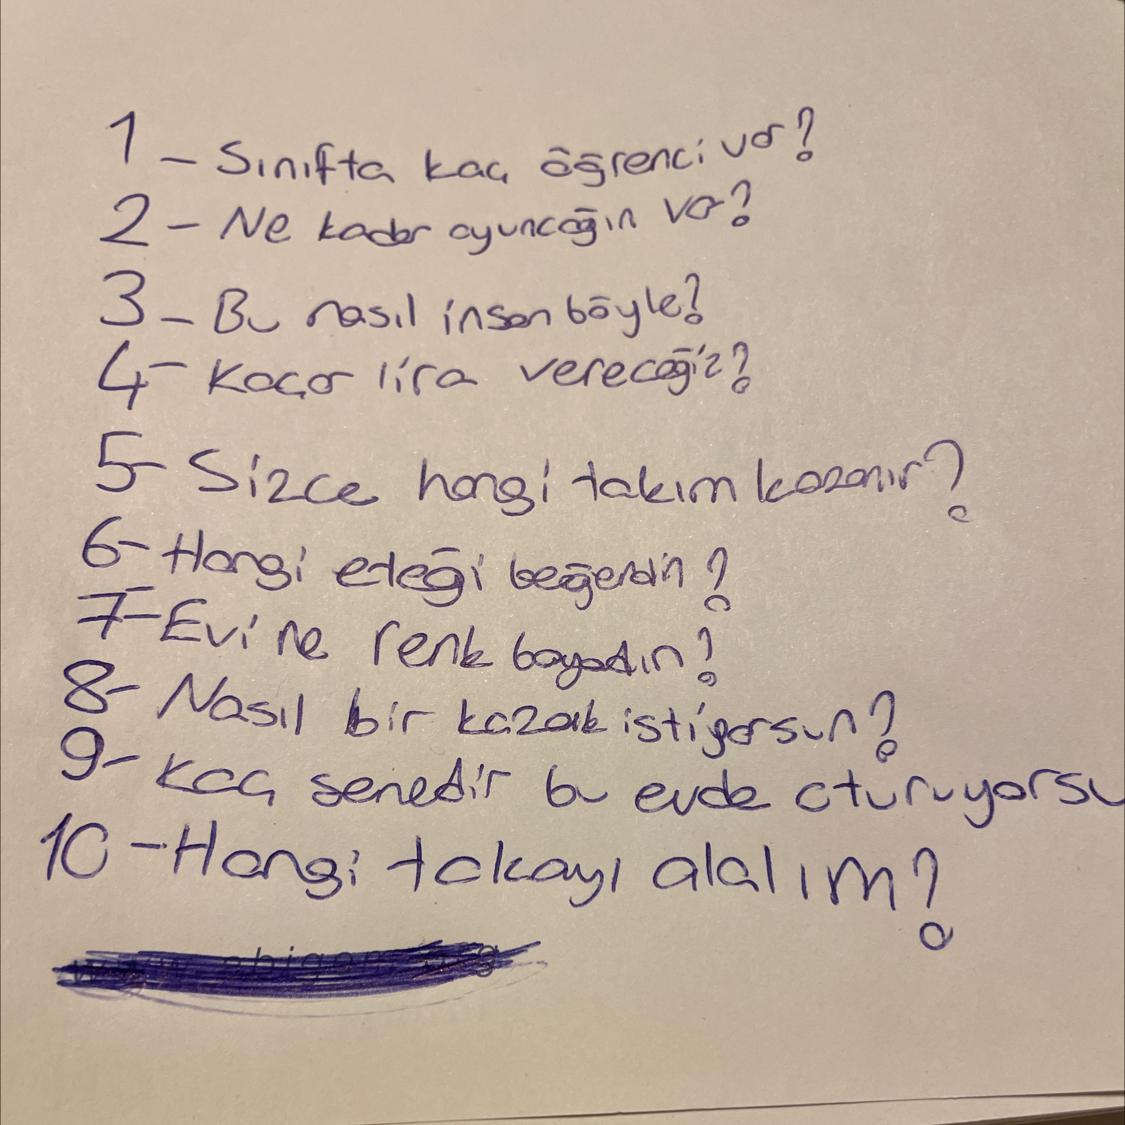 1 - Sınıfta kaç öğrenci var?
2 - Ne kadar oyuncağın var?
3 - Bu nasıl insan böyle?
4 - Kaçar lira vereceğiz?
5 - Sizce hangi takım kazanır?
6 - Hangi eteği beğendin?
7 - Evi ne renk boyadın?
8 - Nasıl bir kazak istiyorsun?
9 - Kaç senedir bu evde oturuyorsu
10 - Hangi tokayı alalım?